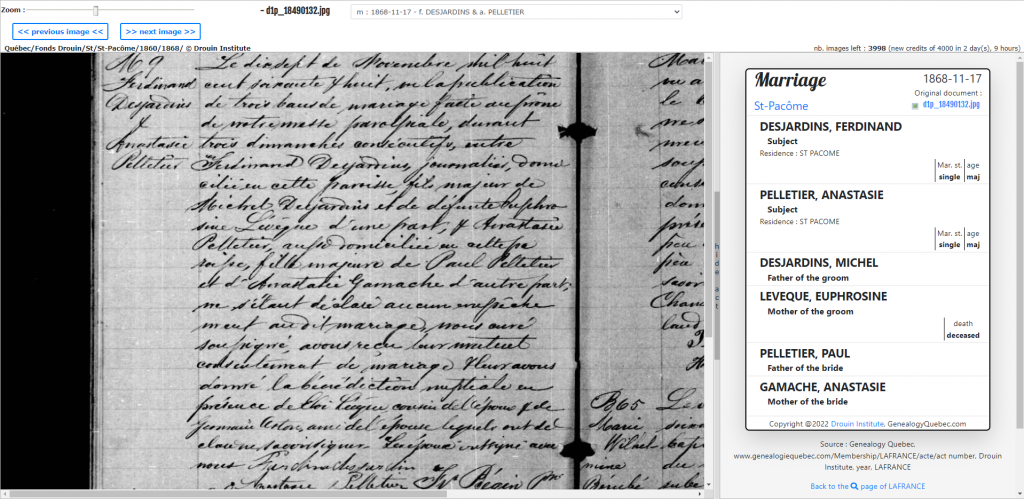 Zoom :
- d1p_18490132.jpg
m : 1868-11-17 - f. DESJARDINS & a. PELLETIER
<< previous image <<
>> next image >>
Québec/Fonds Drouin/St/St-Pacôme/1860/1868/ © Drouin Institute
nb. images left : 3998 (new credits of 4000 in 2 day(s), 9 hours)
M 9
Ferdinand
Desjardins
&
Anastasie
Pelletier
Le dixsept de Novembre mil huit
cent soixante & huit, vu la publication
de trois bans de mariage faite au prône
de notre messe paroissiale, durant
trois dimanches consécutifs, entre
Ferdinand Desjardins journalier, domi
cilié en cette paroisse fils majeur de
Michel Desjardins et de défunte Euphro
sine Levêque d'une part, & Anastasie
Pelletier, aussi domiciliée en cette pa
roisse, fille majeure de Paul Pelletier
et d'Anastasie Gamache d'autre part;
ne s'étant déclaré aucun empêche
ment au dit mariage, nous curé
soussigné, avons reçu leur mutuel
consentement de mariage & leur avons
donné la bénédiction nuptiale en
présence de cousin de l'époux & de
Germain ami de l'épouse lesquels ont dé
claré ne savoir signer. L'époux a signé avec
nous
Anastasie Pelletier Bégin Ptre
B65
Marie
Bérubé
hide act
Marriage
1868-11-17
Original document :
St-Pacôme
d1p_18490132.jpg
DESJARDINS, FERDINAND
Subject
Residence : ST PACOME
Mar. st. age
single maj
PELLETIER, ANASTASIE
Subject
Residence : ST PACOME
Mar. st. age
single maj
DESJARDINS, MICHEL
Father of the groom
LEVEQUE, EUPHROSINE
Mother of the groom
death
deceased
PELLETIER, PAUL
Father of the bride
GAMACHE, ANASTASIE
Mother of the bride
Copyright @2022 Drouin Institute, GenealogyQuebec.com
Source : Genealogy Quebec,
www.genealogiequebec.com/Membership/LAFRANCE/acte/act number. Drouin
Institute. year. LAFRANCE
Back to the page of LAFRANCE